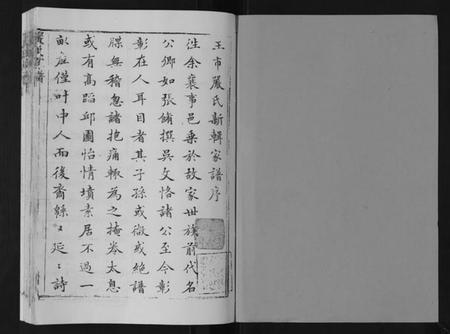 王市嚴氏新輯家譜序
往余襄事邑乘於故家世族前代名
公卿如張饒撰吳文恪諸公至今彰
彰在人耳目者其子孫或微或絕譜
牒無稽忽諸抱痛輒為之掩卷太息
或有高蹈邱園怡情墳素居不過一
畝產僅中人而後裔緜緜延延詩